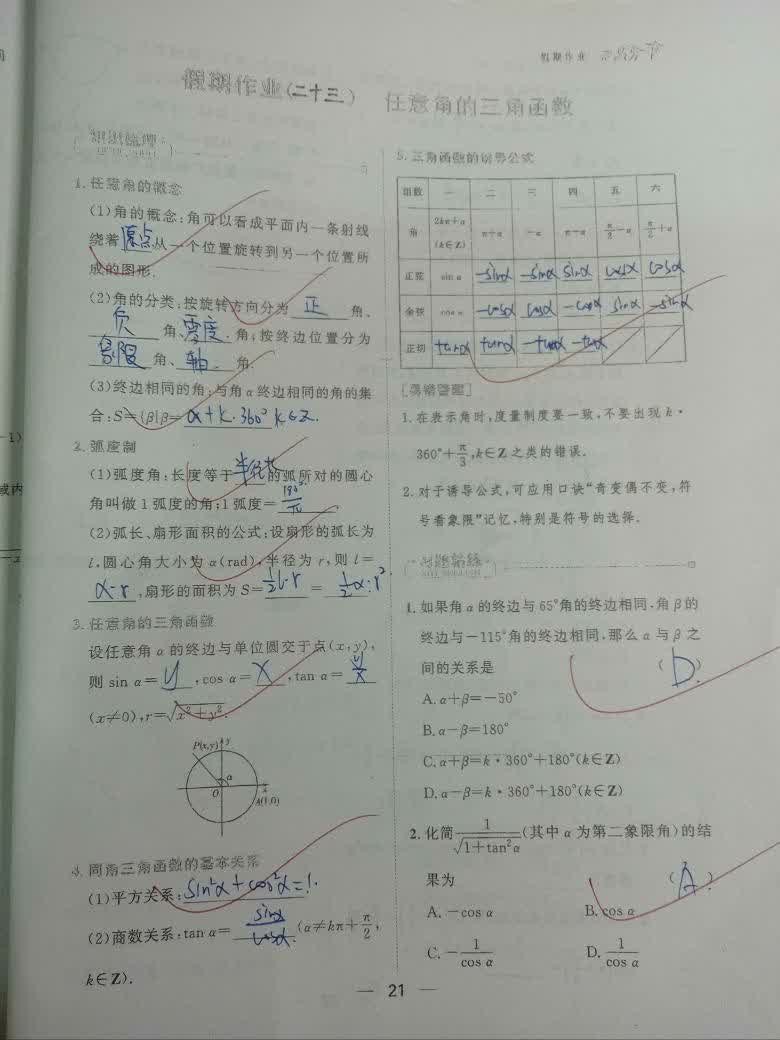 假期作业
假期作业(二十三) 任意角的三角函数
知识梳理
1.任意角的概念
(1)角的概念:角可以看成平面内一条射线
绕着原点从一个位置旋转到另一个位置所
成的图形.
(2)角的分类:按旋转方向分为 正 角、
负 角、零度 角;按终边位置分为
象限 角、轴 角.
(3)终边相同的角:与角α终边相同的角的集
合:S={β|β=α+k·360° k∈Z.
2.弧度制
(1)弧度角:长度等于半径长的弧所对的圆心
角叫做1弧度的角;1弧度=180°/π
(2)弧长、扇形面积的公式:设扇形的弧长为
l,圆心角大小为α(rad),半径为r,则l=
α·r,扇形的面积为S=½l·r=½α·r²
3.任意角的三角函数
设任意角α的终边与单位圆交于点(x,y),
则 sin α=y,cos α=x,tan α=y/x
(x≠0),r=√x²+y².
P(x,y) y
α
O x
A(1,0)
4.同角三角函数的基本关系
(1)平方关系:sin²α+cos²α=1.
(2)商数关系:tan α=sinα/cosα.(α≠kπ+π/2,
k∈Z).
5.三角函数的诱导公式
组数 一 二 三 四 五 六
角 2kπ+α(k∈Z) π+α −α π−α π/2−α π/2+α
正弦 sin α −sinα −sinα sinα cosα cosα
余弦 cos α −cosα cosα −cosα sinα −sinα
正切 tanα tanα −tanα −tanα
[易错警醒]
1.在表示角时,度量制度要一致,不要出现k·
360°+π/3,k∈Z之类的错误.
2.对于诱导公式,可应用口诀“奇变偶不变,符
号看象限”记忆,特别是符号的选择.
习题精练
1.如果角α的终边与65°角的终边相同,角β的
终边与−115°角的终边相同,那么α与β之
间的关系是 (D)
A.α+β=−50°
B.α−β=180°
C.α+β=k·360°+180°(k∈Z)
D.α−β=k·360°+180°(k∈Z)
2.化简1/√1+tan²α(其中α为第二象限角)的结
果为 (A)
A.−cos α B.cos α
C.−1/cos α D.1/cos α
— 21 —